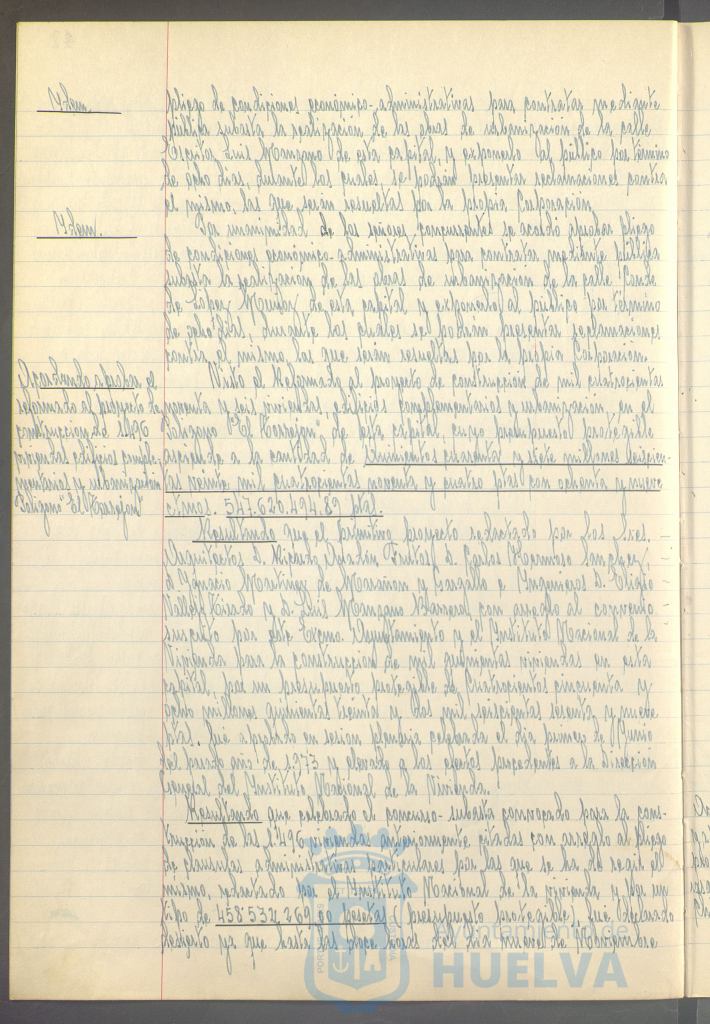 Idem.
pliego de condiciones económico-administrativas para contratar mediante
pública subasta la realización de las obras de urbanización de la calle
Escritor Luis Manzano de esta capital, y exponerlo al público por término
de ocho días, durante los cuales se podrán presentar reclamaciones contra
el mismo, las que serán resueltas por la propia Corporación.
Idem.
Por unanimidad de los señores concurrentes se acordó aprobar pliego
de condiciones económico-administrativas para contratar mediante pública
subasta la realización de las obras de urbanización de la calle Conde
de López Muñoz de esta capital y exponerlo al público por término
de ocho días, durante los cuales se podrán presentar reclamaciones
contra el mismo, las que serán resueltas por la propia Corporación.
aprobar el
reformado al proyecto de
construcción de 1.496
viviendas edificios comple-
mentarios y urbanización
Polígono "El Torrejón"
Visto el Reformado al proyecto de construcción de mil cuatrocientas
noventa y seis viviendas, edificios complementarios y urbanización en el
Polígono "El Torrejón" de esta capital, cuyo presupuesto protegible
asciende a la cantidad de quinientos cuarenta y siete millones seiscien-
tas veinte mil cuatrocientas noventa y cuatro ptas. con ochenta y nueve
ctmos. 547.620.494,89 ptas.
Resultando que el primitivo proyecto redactado por los Sres.
Arquitectos D. Ricardo Anadón Frutos, D. Carlos Hermoso Sánchez,
D. Ignacio Martínez de Marañón y Gargallo e Ingenieros D. Eligio
Vallejo Tirado y D. Luis Manzano Barrero con arreglo al convenio
suscrito por este Excmo. Ayuntamiento y el Instituto Nacional de la
Vivienda para la construcción de mil quinientas viviendas en esta
capital, por un presupuesto protegible de cuatrocientos cincuenta y
ocho millones quinientas treinta y dos mil seiscientas sesenta y nueve
ptas. fué aprobado en sesión plenaria celebrada el día primero de Junio
del pasado año de 1973 y elevado a los efectos procedentes a la Dirección
General del Instituto Nacional de la Vivienda.
Resultando que celebrado el concurso-subasta convocado para la cons-
trucción de las 1.496 viviendas anteriormente citadas con arreglo al pliego
de clausulas administrativas particulares por las que se ha de regir el
mismo, redactado por el Instituto Nacional de la vivienda y por un
tipo de 458.532.269,00 pesetas (presupuesto protegible), fué declarado
desierto ya que hasta las doce horas del día nueve de Noviembre
Ayuntamiento de
HUELVA